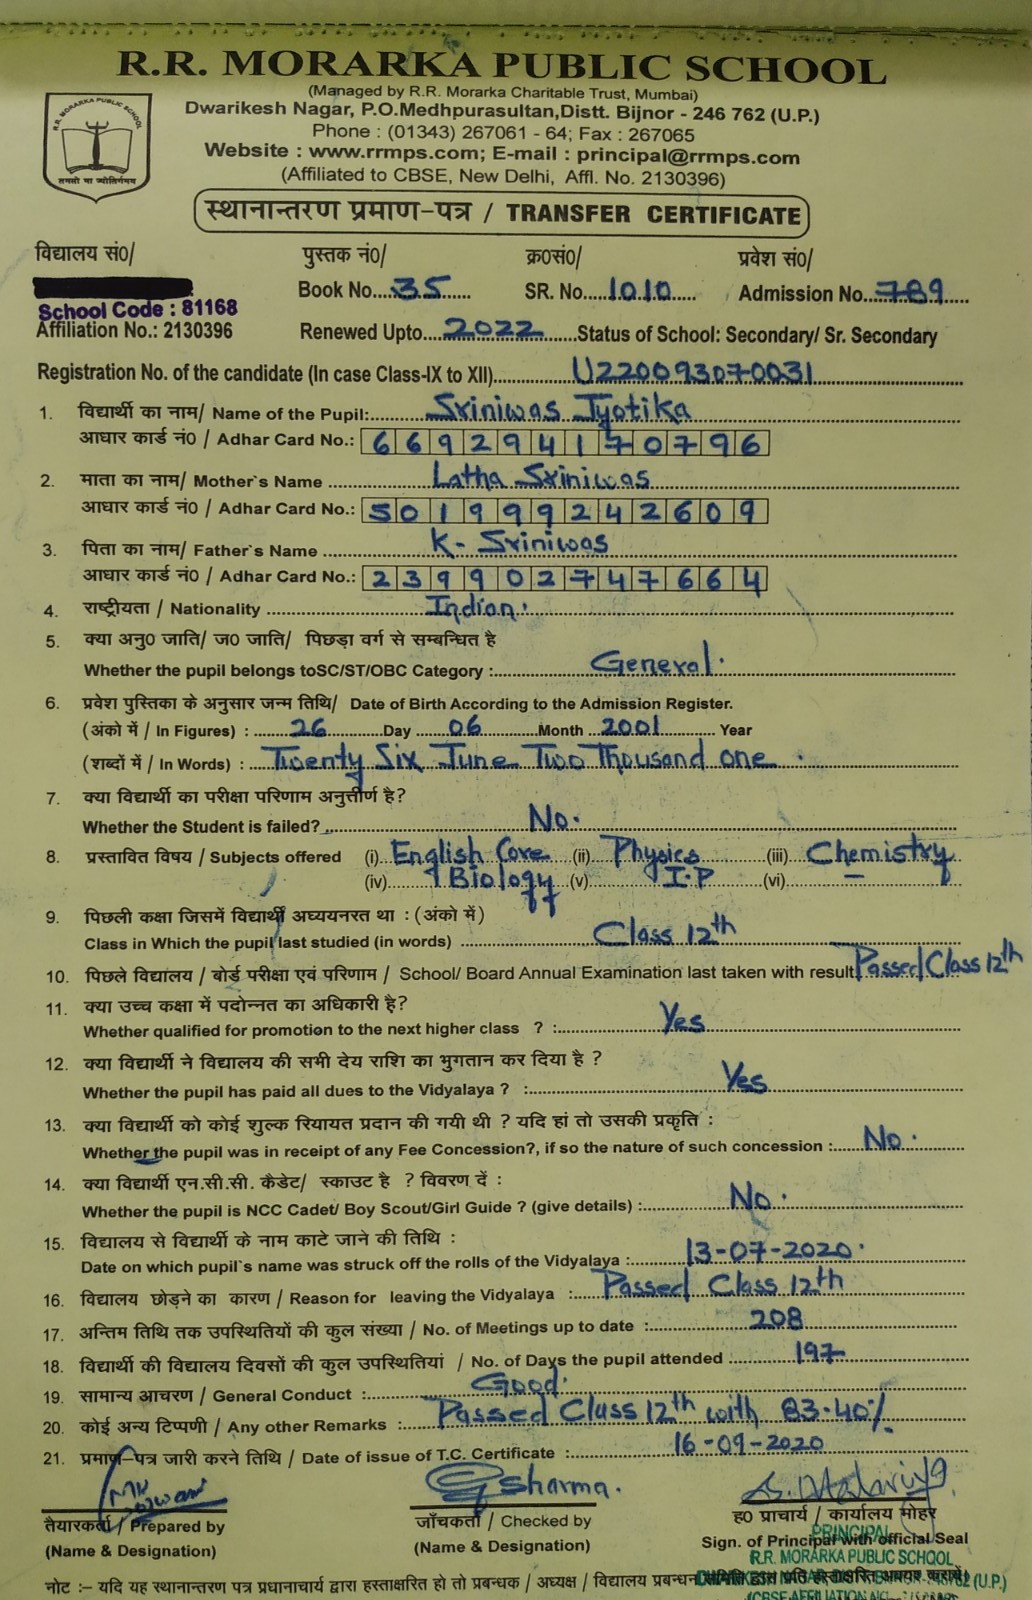 R.R. MORARKA PUBLIC SCHOOL
(Managed by R.R. Morarka Charitable Trust, Mumbai)
Dwarikesh Nagar, P.O.Medhpurasultan,Distt. Bijnor - 246 762 (U.P.)
Phone : (01343) 267061 - 64; Fax : 267065
Website : www.rrmps.com; E-mail : principal@rrmps.com
(Affiliated to CBSE, New Delhi, Affl. No. 2130396)
R.R. MORARKA PUBLIC SCHOOL
तमसो मा ज्योतिर्गमय
स्थानान्तरण प्रमाण-पत्र / TRANSFER CERTIFICATE
विद्यालय सं0/ पुस्तक नं0/ क्र0सं0/ प्रवेश सं0/
Book No. 35 SR. No. 1010 Admission No. 789
School Code : 81168
Affiliation No.: 2130396 Renewed Upto 2022 Status of School: Secondary/ Sr. Secondary
Registration No. of the candidate (In case Class-IX to XII) U220093070031
1. विद्यार्थी का नाम/ Name of the Pupil: Sriniwas Jyotika
आधार कार्ड नं0 / Adhar Card No.: 669294170796
2. माता का नाम/ Mother`s Name Latha Sriniwas
आधार कार्ड नं0 / Adhar Card No.: 501999242609
3. पिता का नाम/ Father`s Name K- Sriniwas
आधार कार्ड नं0 / Adhar Card No.: 239902747664
4. राष्ट्रीयता / Nationality Indian.
5. क्या अनु0 जाति/ ज0 जाति/ पिछड़ा वर्ग से सम्बन्धित है
Whether the pupil belongs toSC/ST/OBC Category : General.
6. प्रवेश पुस्तिका के अनुसार जन्म तिथि/ Date of Birth According to the Admission Register.
(अंको में / In Figures) : 26 Day 06 Month 2001 Year
(शब्दों में / In Words) : Twenty Six June Two Thousand one .
7. क्या विद्यार्थी का परीक्षा परिणाम अनुत्तीर्ण है?
Whether the Student is failed? No.
8. प्रस्तावित विषय / Subjects offered (i) English Core (ii) Physics (iii) Chemistry
(iv) Biology (v) I.P (vi)
9. पिछली कक्षा जिसमें विद्यार्थी अघ्ययनरत था : (अंको में)
Class in Which the pupil last studied (in words) Class 12th
10. पिछले विद्यालय / बोर्ड परीक्षा एवं परिणाम / School/ Board Annual Examination last taken with result Passed Class 12th
11. क्या उच्च कक्षा में पदोन्नत का अधिकारी है?
Whether qualified for promotion to the next higher class ? : Yes
12. क्या विद्यार्थी ने विद्यालय की सभी देय राशि का भुगतान कर दिया है ?
Whether the pupil has paid all dues to the Vidyalaya ? : Yes
13. क्या विद्यार्थी को कोई शुल्क रियायत प्रदान की गयी थी ? यदि हां तो उसकी प्रकृति :
Whether the pupil was in receipt of any Fee Concession?, if so the nature of such concession : No.
14. क्या विद्यार्थी एन.सी.सी. कैडेट/ स्काउट है ? विवरण दें :
Whether the pupil is NCC Cadet/ Boy Scout/Girl Guide ? (give details) : No.
15. विद्यालय से विद्यार्थी के नाम काटे जाने की तिथि :
Date on which pupil`s name was struck off the rolls of the Vidyalaya : 13-07-2020.
16. विद्यालय छोड़ने का कारण / Reason for leaving the Vidyalaya : Passed Class 12th
17. अन्तिम तिथि तक उपस्थितियों की कुल संख्या / No. of Meetings up to date : 208
18. विद्यार्थी की विद्यालय दिवसों की कुल उपस्थितियां / No. of Days the pupil attended 197
19. सामान्य आचरण / General Conduct : Good.
20. कोई अन्य टिप्पणी / Any other Remarks : Passed Class 12th with 83.40%.
21. प्रमाण-पत्र जारी करने तिथि / Date of issue of T.C. Certificate : 16-09-2020
Sharma.
तैयारकर्ता / Prepared by जाँचकर्ता / Checked by ह0 प्राचार्य / कार्यालय मोहर
(Name & Designation) (Name & Designation) Sign. of Principal with official Seal
PRINCIPAL
R.R. MORARKA PUBLIC SCHOOL
नोट :– यदि यह स्थानान्तरण पत्र प्रधानाचार्य द्वारा हस्ताक्षरित हो तो प्रबन्धक / अध्यक्ष / विद्यालय प्रबन्धन समिति द्वारा प्रति हस्ताक्षरित अवश्य करायें।